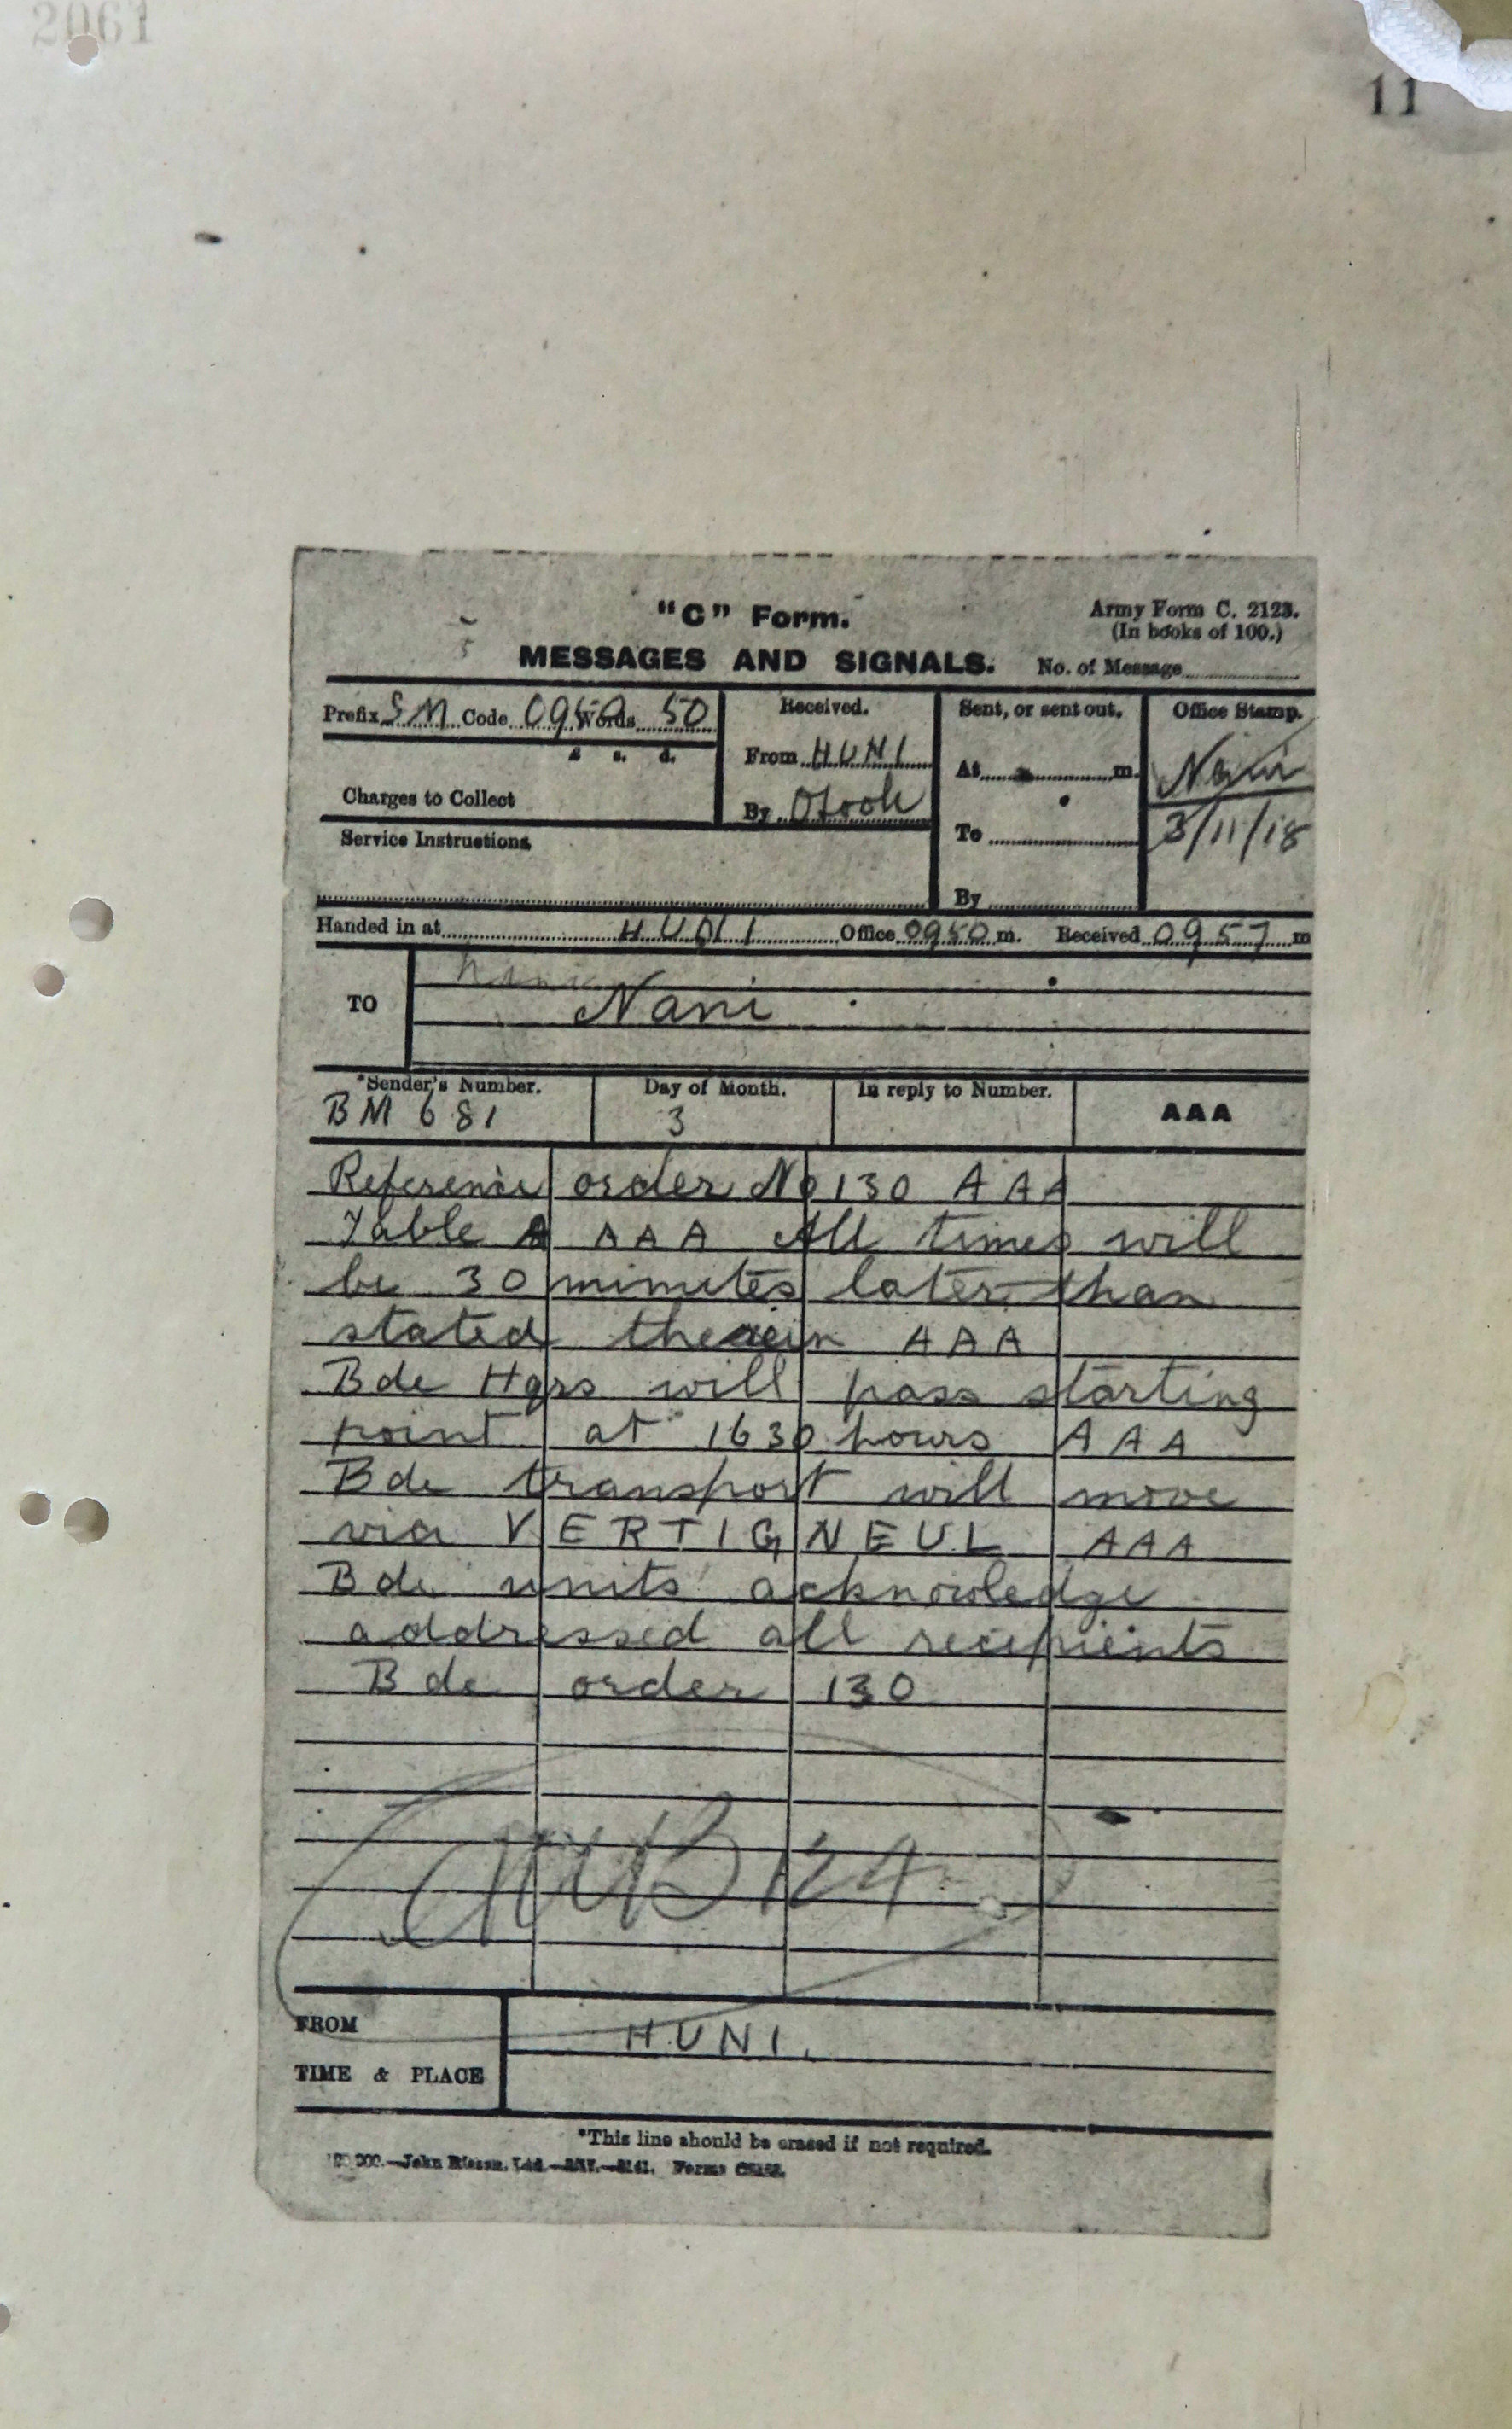 2061
11
"C" Form.
Army Form C. 2123.
(In books of 100.)
MESSAGES AND SIGNALS.
No. of Message
Prefix SM Code 0950 Words 50
Received.
Sent, or sent out.
Office Stamp.
£ s. d.
From HUNI
At m.
Nani
Charges to Collect
By
To
3/11/18
Service Instructions
By
Handed in at HUNI Office 0950 m. Received 0957 m
TO
Nani
*Sender's Number.
Day of Month.
In reply to Number.
AAA
BM 681
3
Reference order No 130 AAA
Table A AAA All times will
be 30 minutes later than
stated therein AAA
Bde Hqrs will pass starting
point at 1630 hours AAA
Bde transport will move
via VERTIGNEUL AAA
Bde units acknowledge
addressed all recipients
Bde order 130
FROM
HUNI.
TIME & PLACE
*This line should be erased if not required.